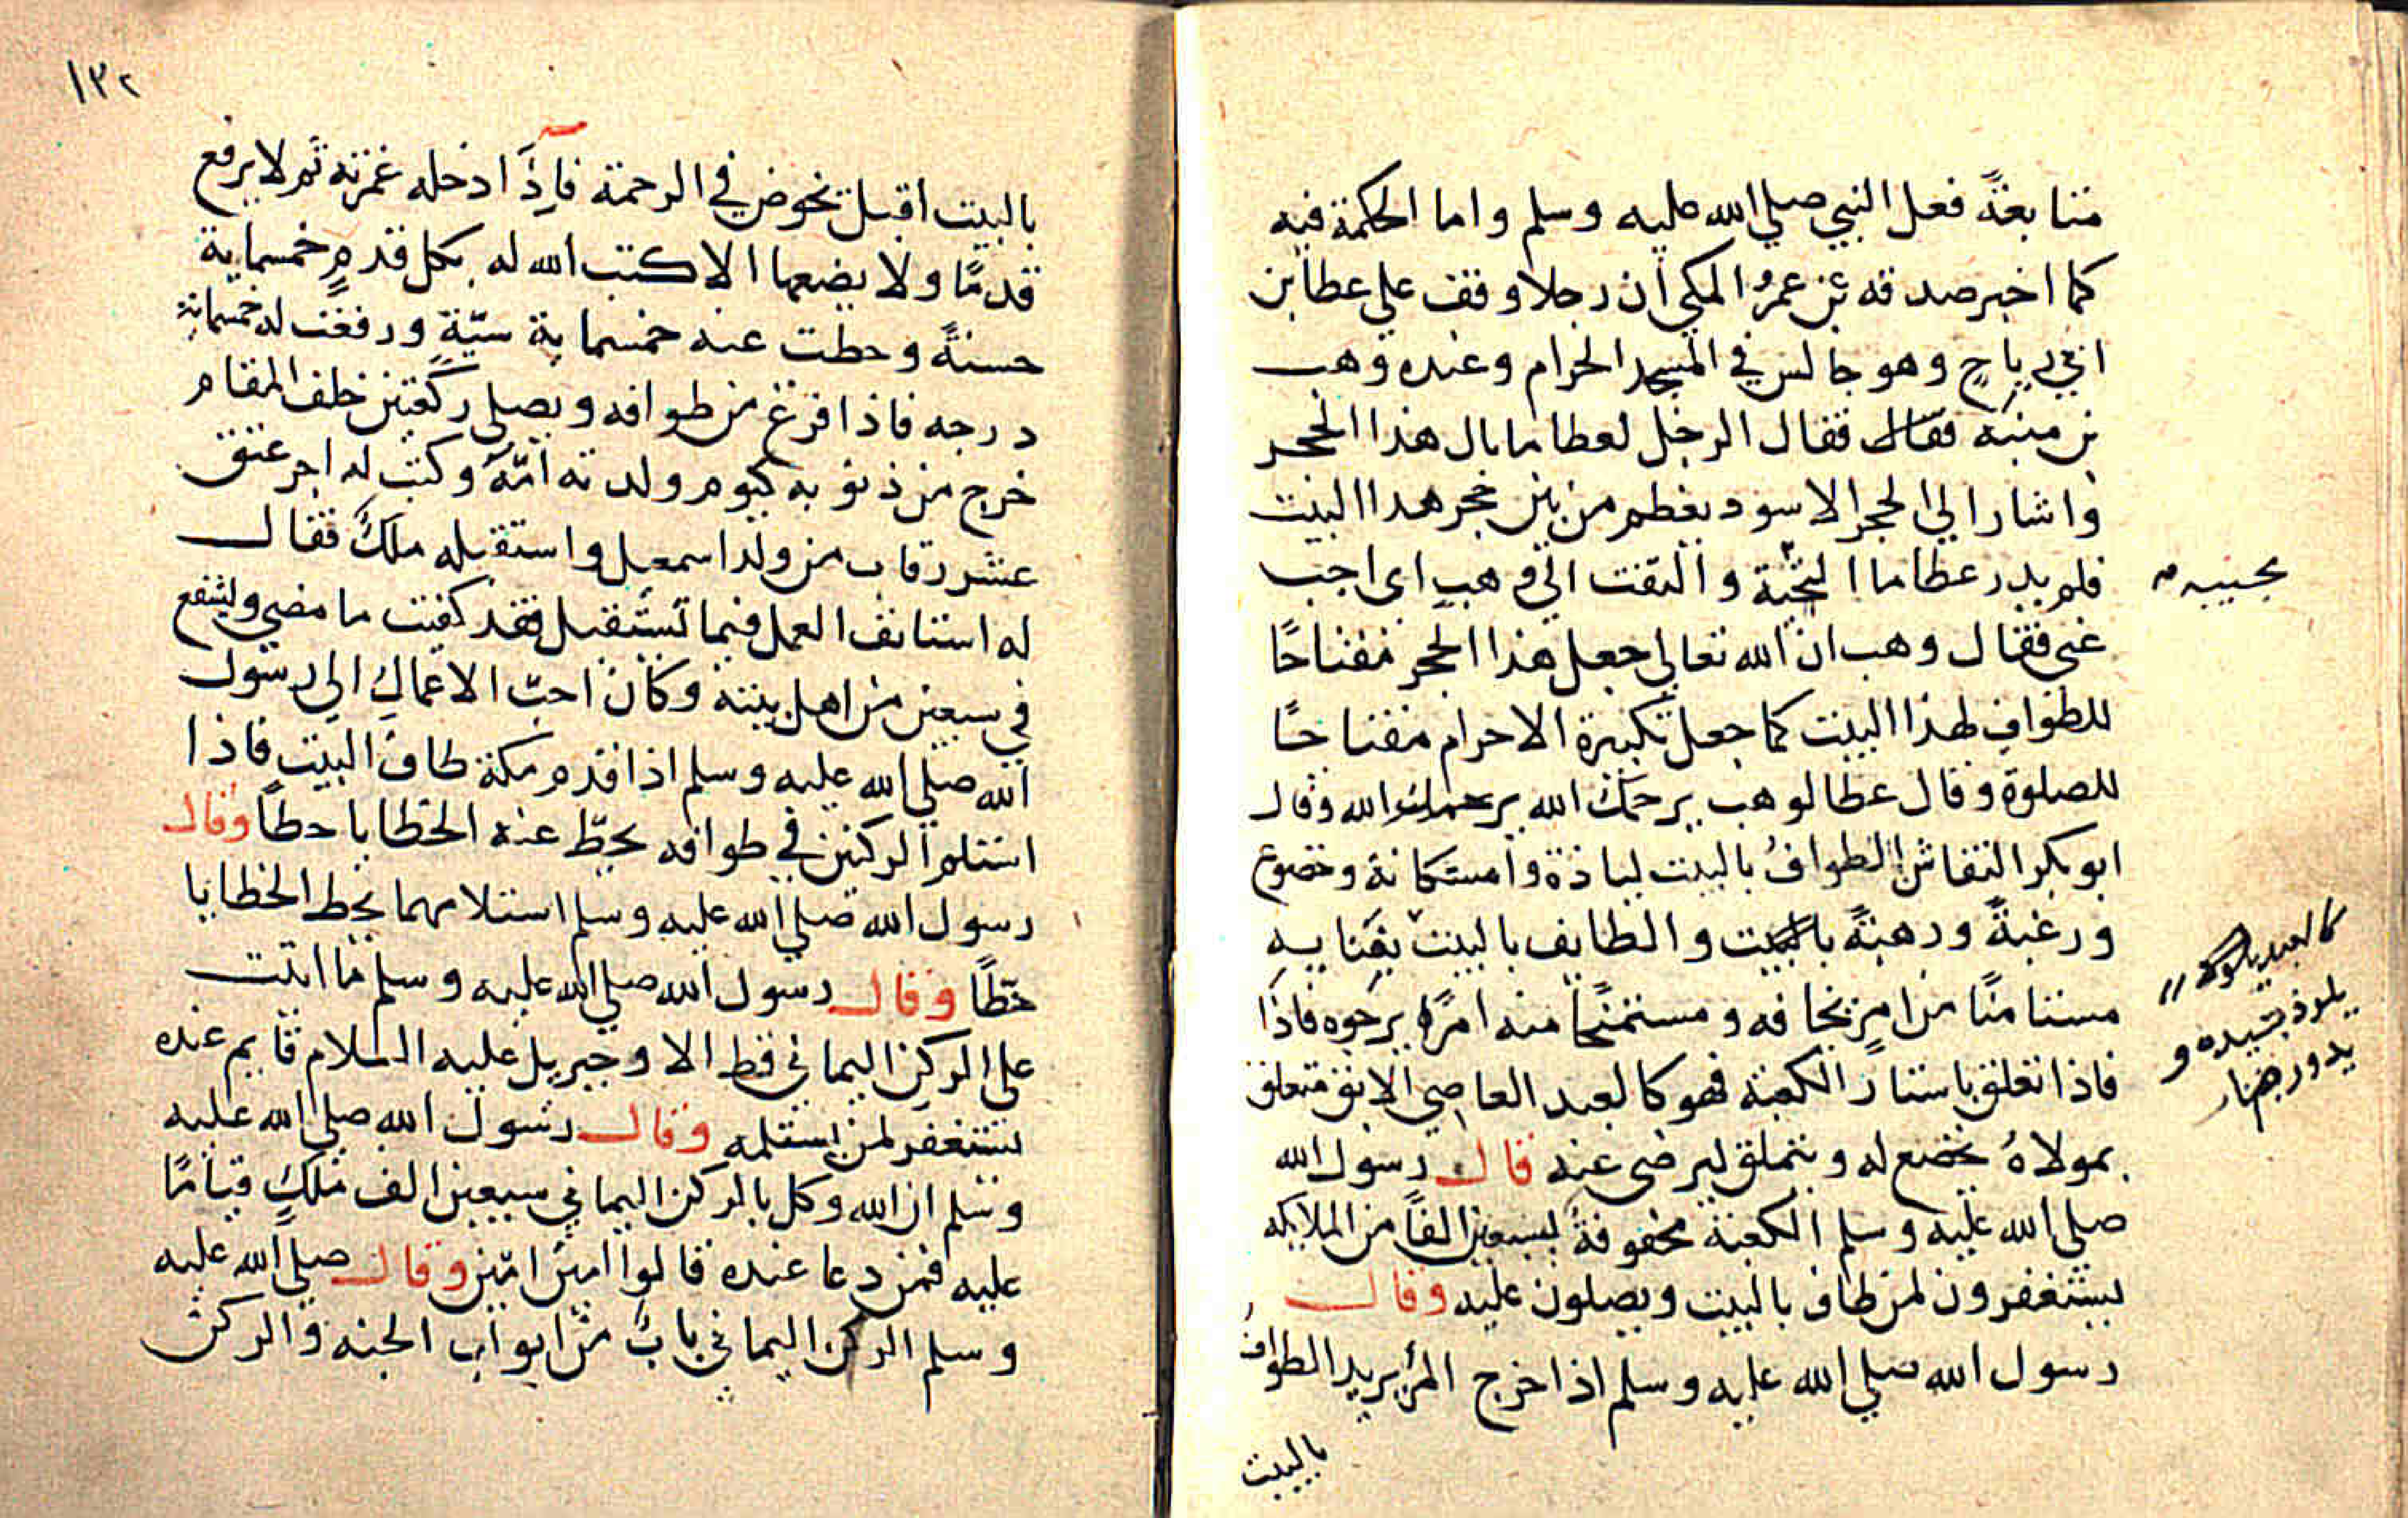 متابعةً فعل النبي صلي الله عليه وسلم واما الحكمة فيه
كما اخبر صدقه بن عمرُ المكي ان رجلا وقف علي عطا بن
ابي رباحٍ وهو جالس في المسجد الحرام وعنده وهب
بن منبه فقال فقال الرجل لعطا ما بال هذا الحجر
واشار الي الحجر الاسود يعظم من بين حجر هدا البيت
فلم يدر عطا ما التحية والتفت الي وهبٍ اى اجب
بجيبه م
عنى فقال وهب ان الله تعالي جعل هذا الحجر مفتاحًا
للطوافِ لهذا البيت كما جعل تكبيرة الاحرام مفتاحًا
للصلوة وقال عطا لوهب يرحمك الله يرحمك الله وقال
ابو بكر النقاش الطوافُ بالبيت لياذة واستكانة وخضوع
ورغبةً ورهبةً بالبيت والطايف بالبيت بفنايه
كالعبد
يلوذ بسيده و
يدور
مستامنًا من امرٍ يخافه ومستمنحًا منه امرًا يرجوه فاذا
فاذا تعلق باستار الكعبة فهو كالعبد العاصي الابق متعلق
بمولاهُ يخضع له ويتملق ليرضى عنه قال رسول الله
صلي الله عليه وسلم الكعبة محفوفةٌ بسبعين الفاً من الملايكه
يستغفرون لمن طاف بالبيت ويصلون عليه وقال
رسول الله صلي الله عليه وسلم اذا خرج المرُ يريد الطوافُ
بالبيت
١٣٢
بالبيت اقبل يخوض في الرحمة فاِذَا ادخله غمرته ثم لا يرفع
قدمًا ولا يضعها الا كتب الله له بكل قدمٍ خمسماية
حسنةً وحطت عنه خمسماية سيّة ورفعت له خمسماية
درجه فاذا فرغ من طوافه ويصلي ركعتين خلف المقام
خرج من ذنوبه كيوم ولدته امّهُ وكتب له اجر عتق
عشر رقاب من ولد اسمعيل واستقبله ملكُ فقال
له استانف العمل فيما تستقبل فقد كفيت ما مضي وليشفع
في سبعين من اهل بيته وكان احبّ الاعمالِ الي رسول
الله صلي الله عليه وسلم اذا قدم مكة طافَ البيت فاذا
استلم الركنين في طوافه يحطّ عنه الخطايا حطاً وقال
رسول الله صلي الله عليه وسلم استلامهما يحط الخطايا
حَطّاً وقال رسول الله صلي الله عليه وسلم ما اتيت
على الركن اليمانى قط الا وجبريل عليه السلام قايم عنده
يستغفر لمن يستلمه وقال رسول الله صلي الله عليه
وسلم ان الله وكل بالركن اليماني سبعين الف ملكٍ قيامًا
عليه فمن دعا عنده قالوا امين امين وقال صلي الله عليه
وسلم الركن اليمانى بابٌ من ابواب الجنه والركن